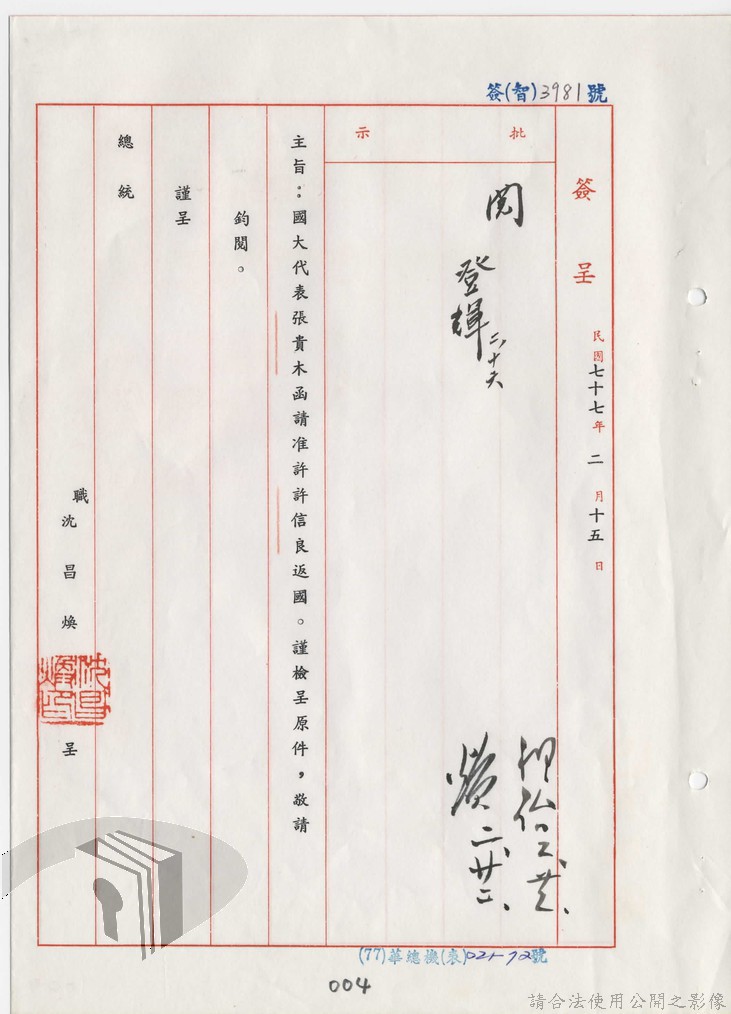 簽(智)3981號
簽呈
民國七十七年二月十五日
批示
閱
登輝 二、十六
主旨：國大代表張貴木函請准許許信良返國。謹檢呈原件，敬請
鈞閱。
謹呈
總統
職
沈昌煥
呈
(77)華總機(表)
號
004
請合法使用公開之影像